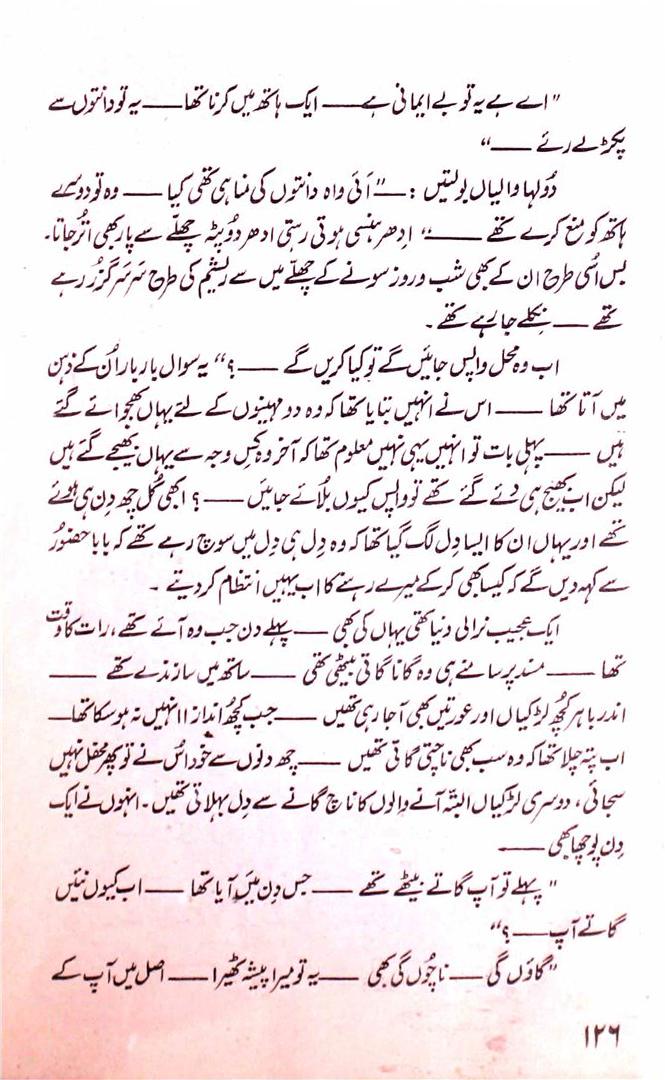 "اے ہے یہ تو بے ایمانی ہے —— ایک ہاتھ میں کرنا تھا —— یہ تو دانتوں سے
پکڑ لے رئے ——"
دُولہا والیاں بولتیں :— "اَئی واہ دانتوں کی مناہی تھی کیا —— وہ تو دوسرے
ہاتھ کو منع کرے تھے ——" اِدھر ہنسی ہوتی رہتی ادھر دوپٹہ چھلّے سے پار بھی اُتر جاتا۔
بس اُسی طرح ان کے بھی شب و روز سونے کے چھلّے میں سے ریشم کی طرح سَر سَر گزر رہے
تھے —— نکلے جا رہے تھے ۔
اب وہ محل واپس جائیں گے تو کیا کریں گے ——؟" یہ سوال بار بار اُن کے ذہن
میں آتا تھا —— اس نے انہیں بتایا تھا کہ وہ دو مہینوں کے لئے یہاں بھجوائے گئے
ہیں —— پہلی بات تو انہیں یہی نہیں معلوم تھا کہ آخر وہ کِس وجہ سے یہاں بھیجے گئے ہیں
لیکن اب بھیج ہی دئے گئے تھے تو واپس کیوں بلائے جائیں ——؟ ابھی کُل چھ دِن ہی ہوئے
تھے اور یہاں ان کا ایسا دِل لگ گیا تھا کہ وہ دِل ہی دِل میں سوچ رہے تھے کہ بابا حضور
سے کہہ دیں گے کہ کیسا بھی کر کے میرے رہنے کا اب یہیں انتظام کر دیتے ۔
ایک عجیب نرالی دنیا تھی یہاں کی بھی —— پہلے دن جب وہ آئے تھے، رات کا وقت
تھا —— مسند پر سامنے ہی وہ گانا گاتی بیٹھی تھی —— ساتھ میں سازندے تھے ——
اندر باہر کچھ لڑکیاں اور عورتیں بھی آ جا رہی تھیں —— جب کچھ اندازا انہیں نہ ہو سکا تھا ——
اب پتہ چلا تھا کہ وہ سب بھی ناچتی گاتی تھیں —— چھ دنوں سے خود اسُ نے تو پھر محفل نہیں
سجائی، دوسری لڑکیاں البتّہ آنے والوں کا ناچ گانے سے دِل بہلاتی تھیں۔ انہوں نے ایک
دِن پوچھا بھی ——
"پہلے تو آپ گاتے بیٹھے تھے —— جس دِن میں آیا تھا —— اب کیوں نئیں
گاتے آپ ——؟"
"گاؤں گی —— ناچُوں گی بھی —— یہ تو میرا پیشہ ٹھیرا —— اصل میں آپ کے
۱۲۶